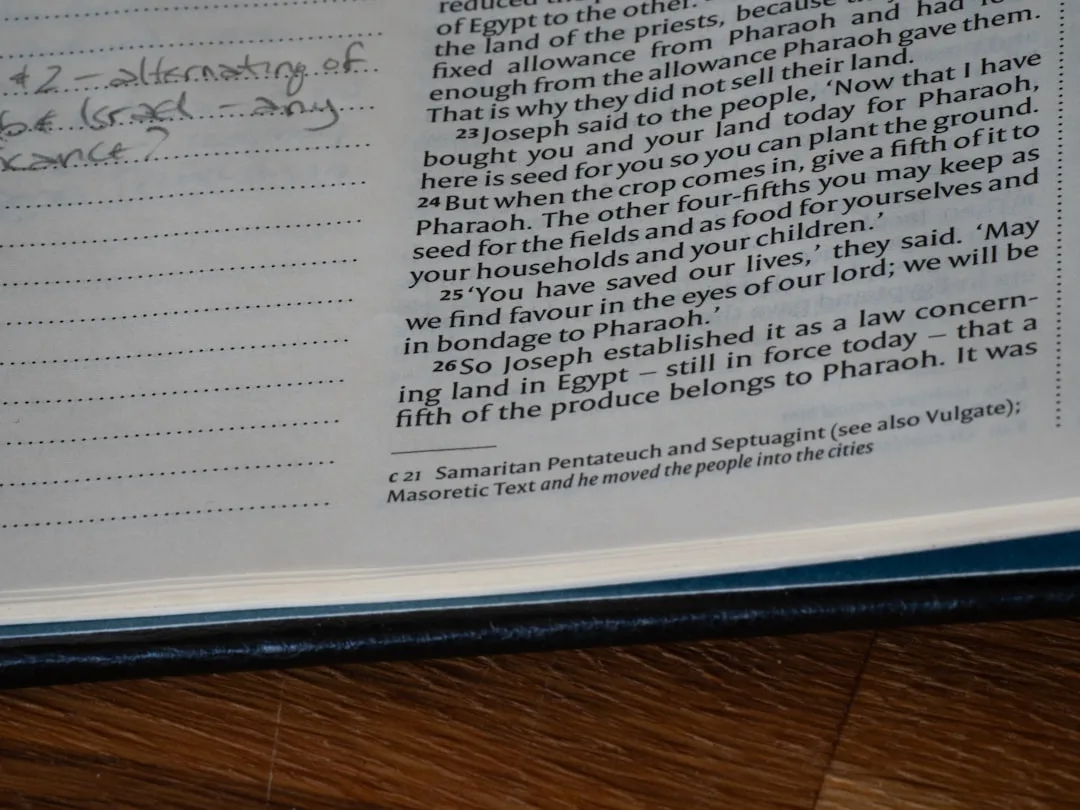 & 2 - alternating of
Israel - any
reduced the
of Egypt to the other.
the land of the priests, because
fixed allowance from Pharaoh and had
enough from the allowance Pharaoh gave them.
That is why they did not sell their land.
23 Joseph said to the people, ‘Now that I have
bought you and your land today for Pharaoh,
here is seed for you so you can plant the ground.
24 But when the crop comes in, give a fifth of it to
Pharaoh. The other four-fifths you may keep as
seed for the fields and as food for yourselves and
your households and your children.’
25 ‘You have saved our lives,’ they said. ‘May
we find favour in the eyes of our lord; we will be
in bondage to Pharaoh.’
26 So Joseph established it as a law concern-
ing land in Egypt – still in force today – that a
fifth of the produce belongs to Pharaoh. It was
c 21 Samaritan Pentateuch and Septuagint (see also Vulgate);
Masoretic Text and he moved the people into the cities